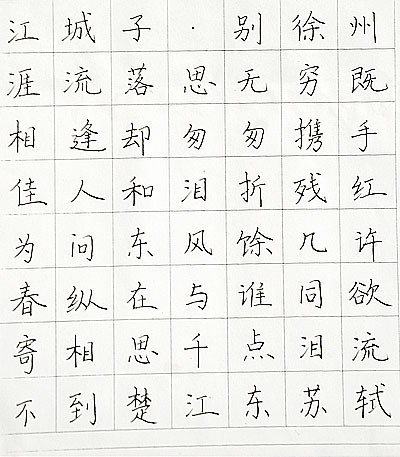 江城子·别徐州
涯流落思无穷既
相逢却匆匆携手
佳人和泪折残红
为问东风馀几许
春纵在与谁同欲
寄相思千点泪流
不到楚江东苏轼